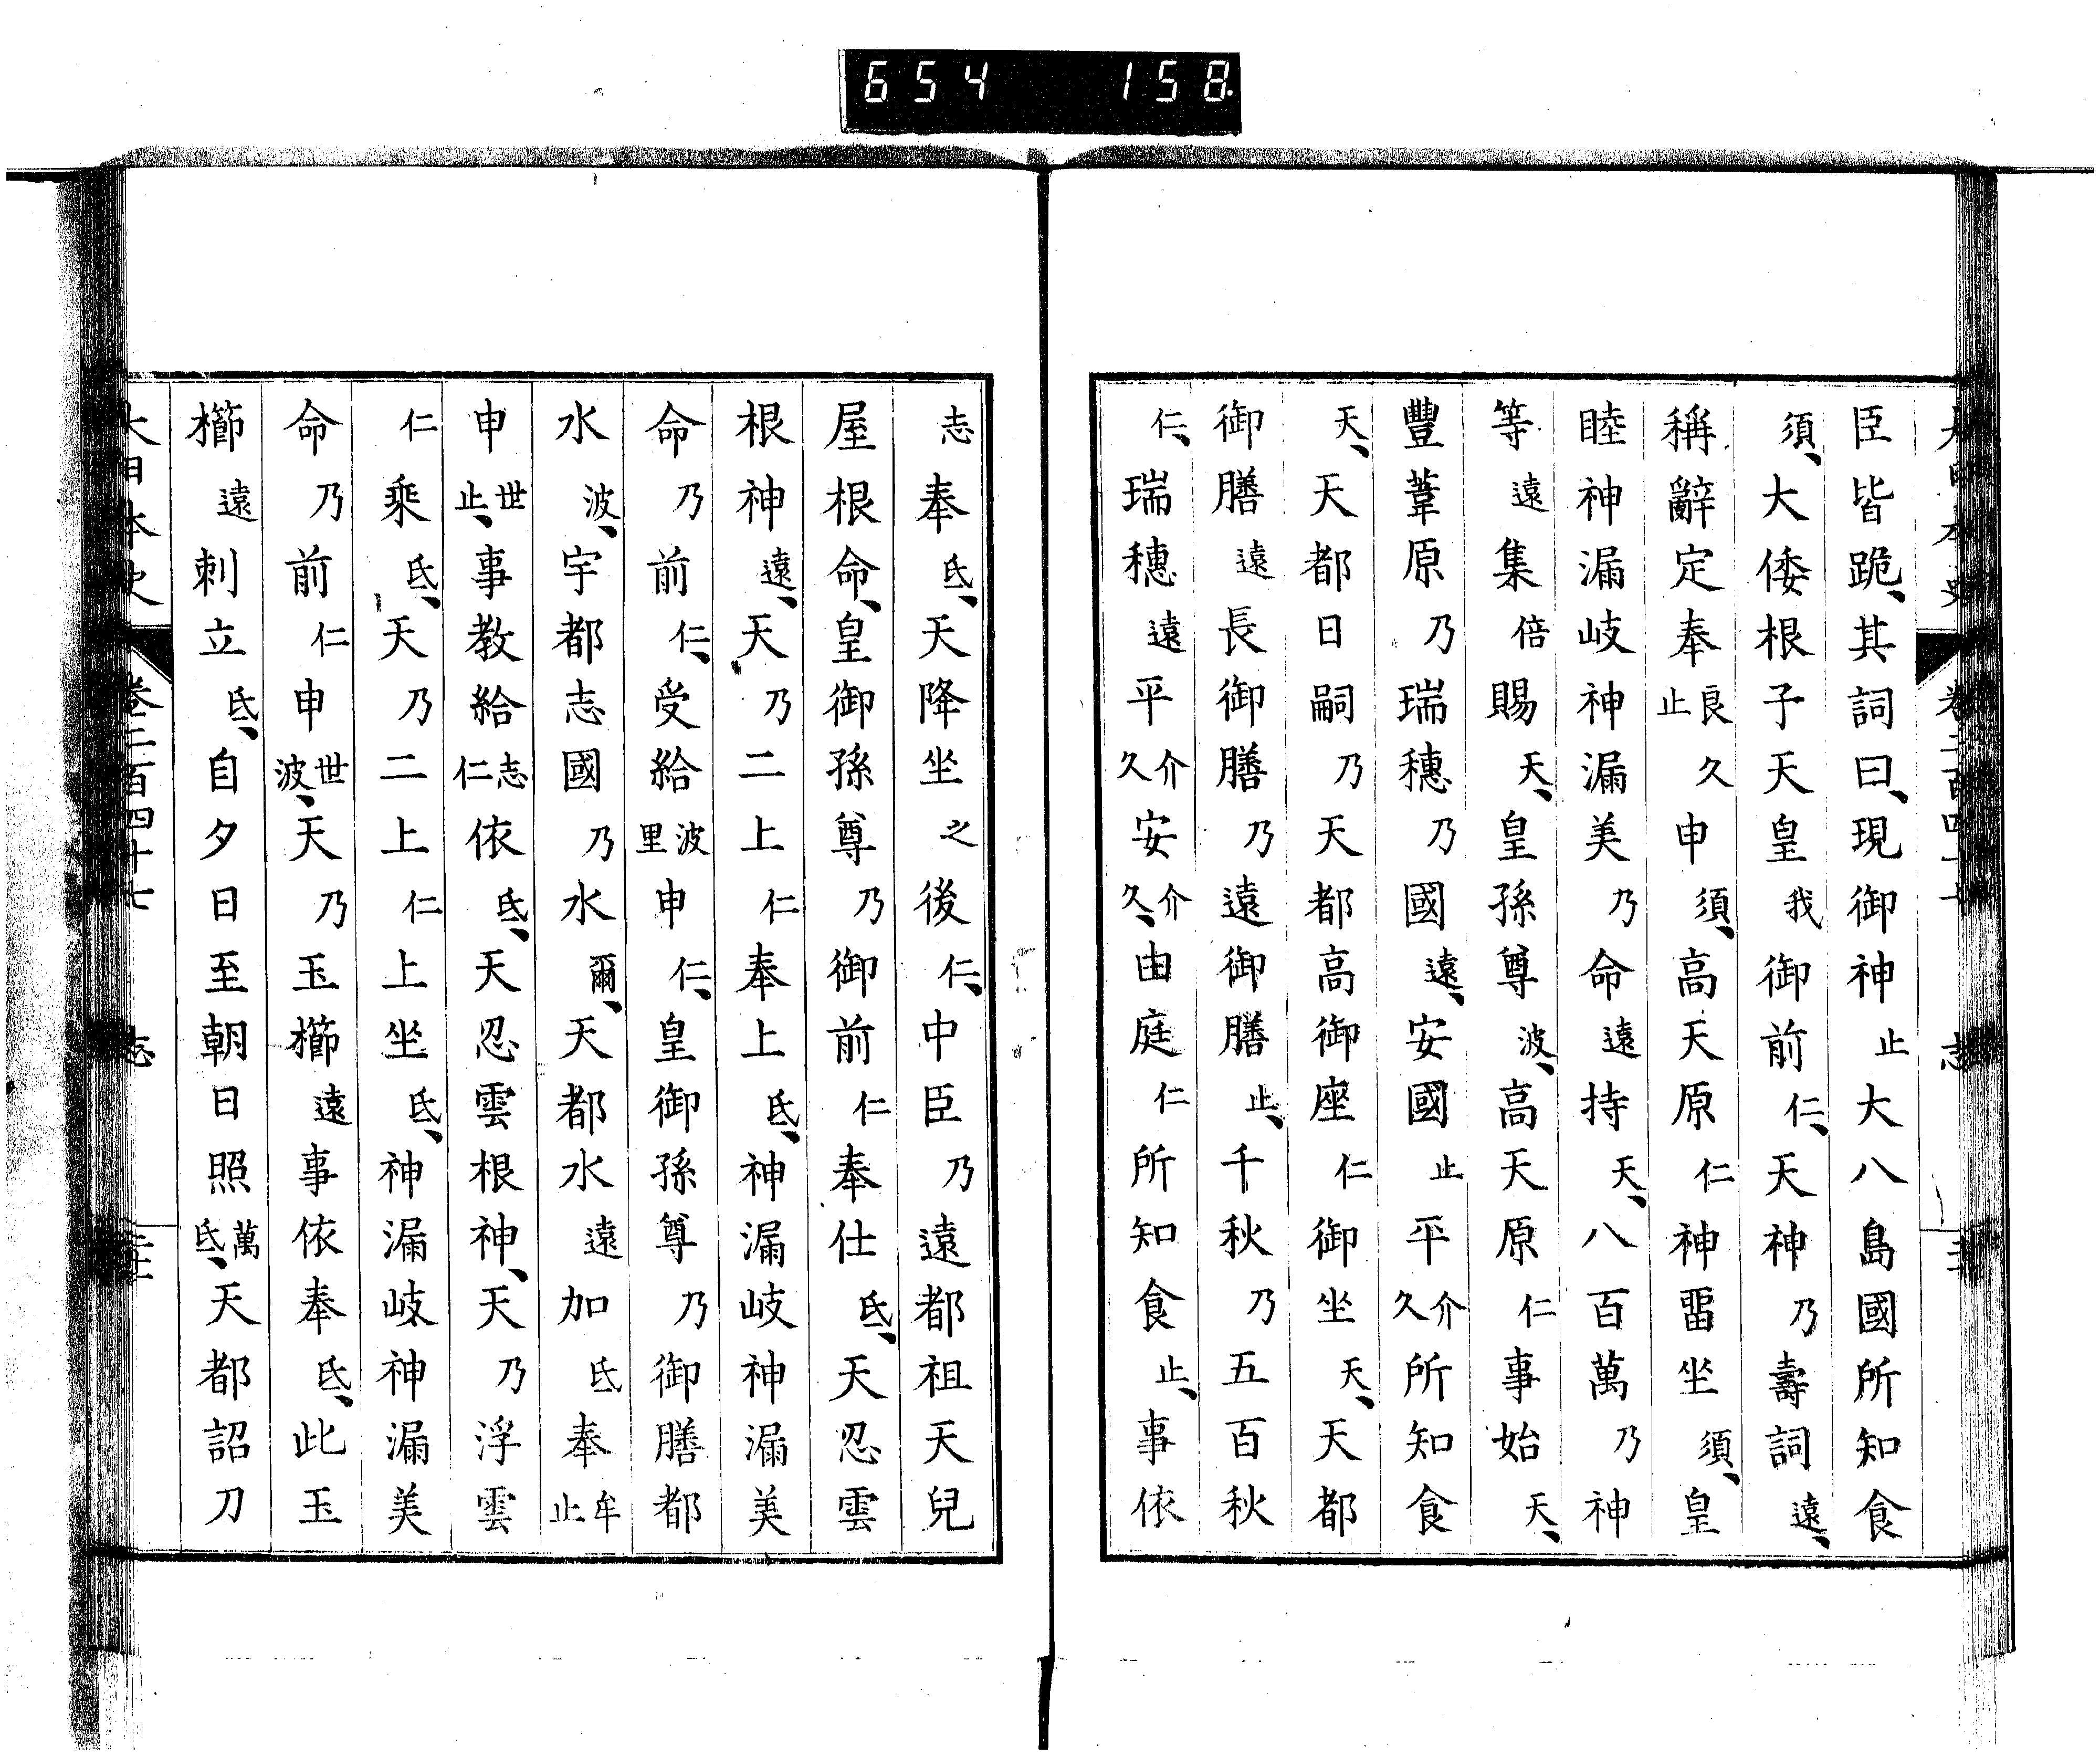 654 158
大日本史 卷二百四十七 志
臣皆跪、其詞曰、現御神止大八島國所知食
須、大倭根子天皇我御前仁、天神乃壽詞遠、
稱辭定奉良久止申須、高天原仁神留坐須、皇
睦神漏岐神漏美乃命遠持天、八百萬乃神
等遠集倍賜天、皇孫尊波、高天原仁事始天、
豐葦原乃瑞穗乃國遠、安國止平介久所知食
天、天都日嗣乃天都高御座仁御坐天、天都
御膳遠長御膳乃遠御膳止、千秋乃五百秋
仁、瑞穗遠平介久安介久、由庭仁所知食止、事依
志奉氐、天降坐之後仁、中臣乃遠都祖天兒
屋根命、皇御孫尊乃御前仁奉仕氐、天忍雲
根神遠、天乃二上仁奉上氐、神漏岐神漏美
命乃前仁、受給波里申仁、皇御孫尊乃御膳都
水波、宇都志國乃水爾、天都水遠加氐奉牟止
申世止、事教給志仁依氐、天忍雲根神、天乃浮雲
仁乘氐、天乃二上仁上坐氐、神漏岐神漏美
命乃前仁申世波、天乃玉櫛遠事依奉氐、此玉
櫛遠刺立氐、自夕日至朝日照萬氐、天都詔刀
大日本史 卷二百四十七 志